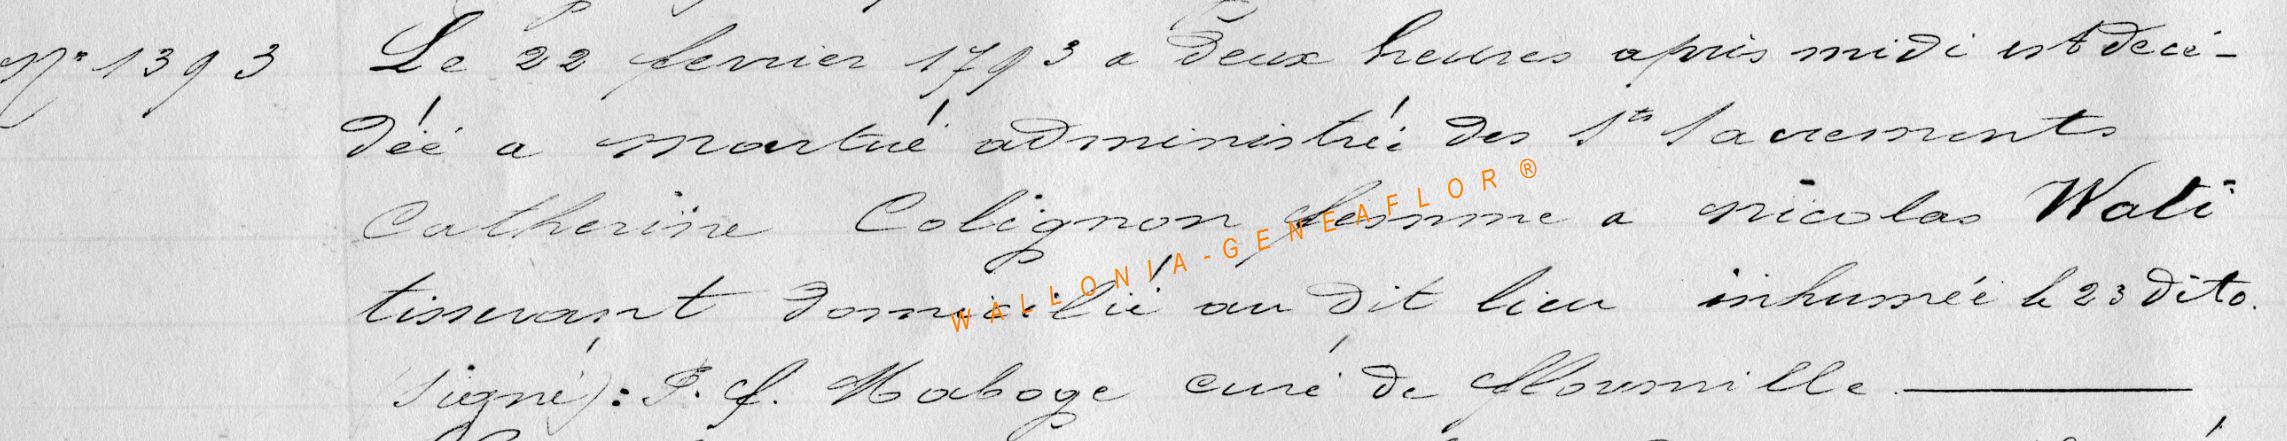 N° 1393 Le 22 fevrier 1793 a deux heures après midi est décé-
déé a Martué administréé des Sts Sacrements
Catherine Colignon femme a Nicolas Wati
tisserant domicilié au dit lieu inhuméé le 23 dito.
(Signé): P. f. Maboge curé de fflorenville.
WALLONIA-GENEAFLOR®